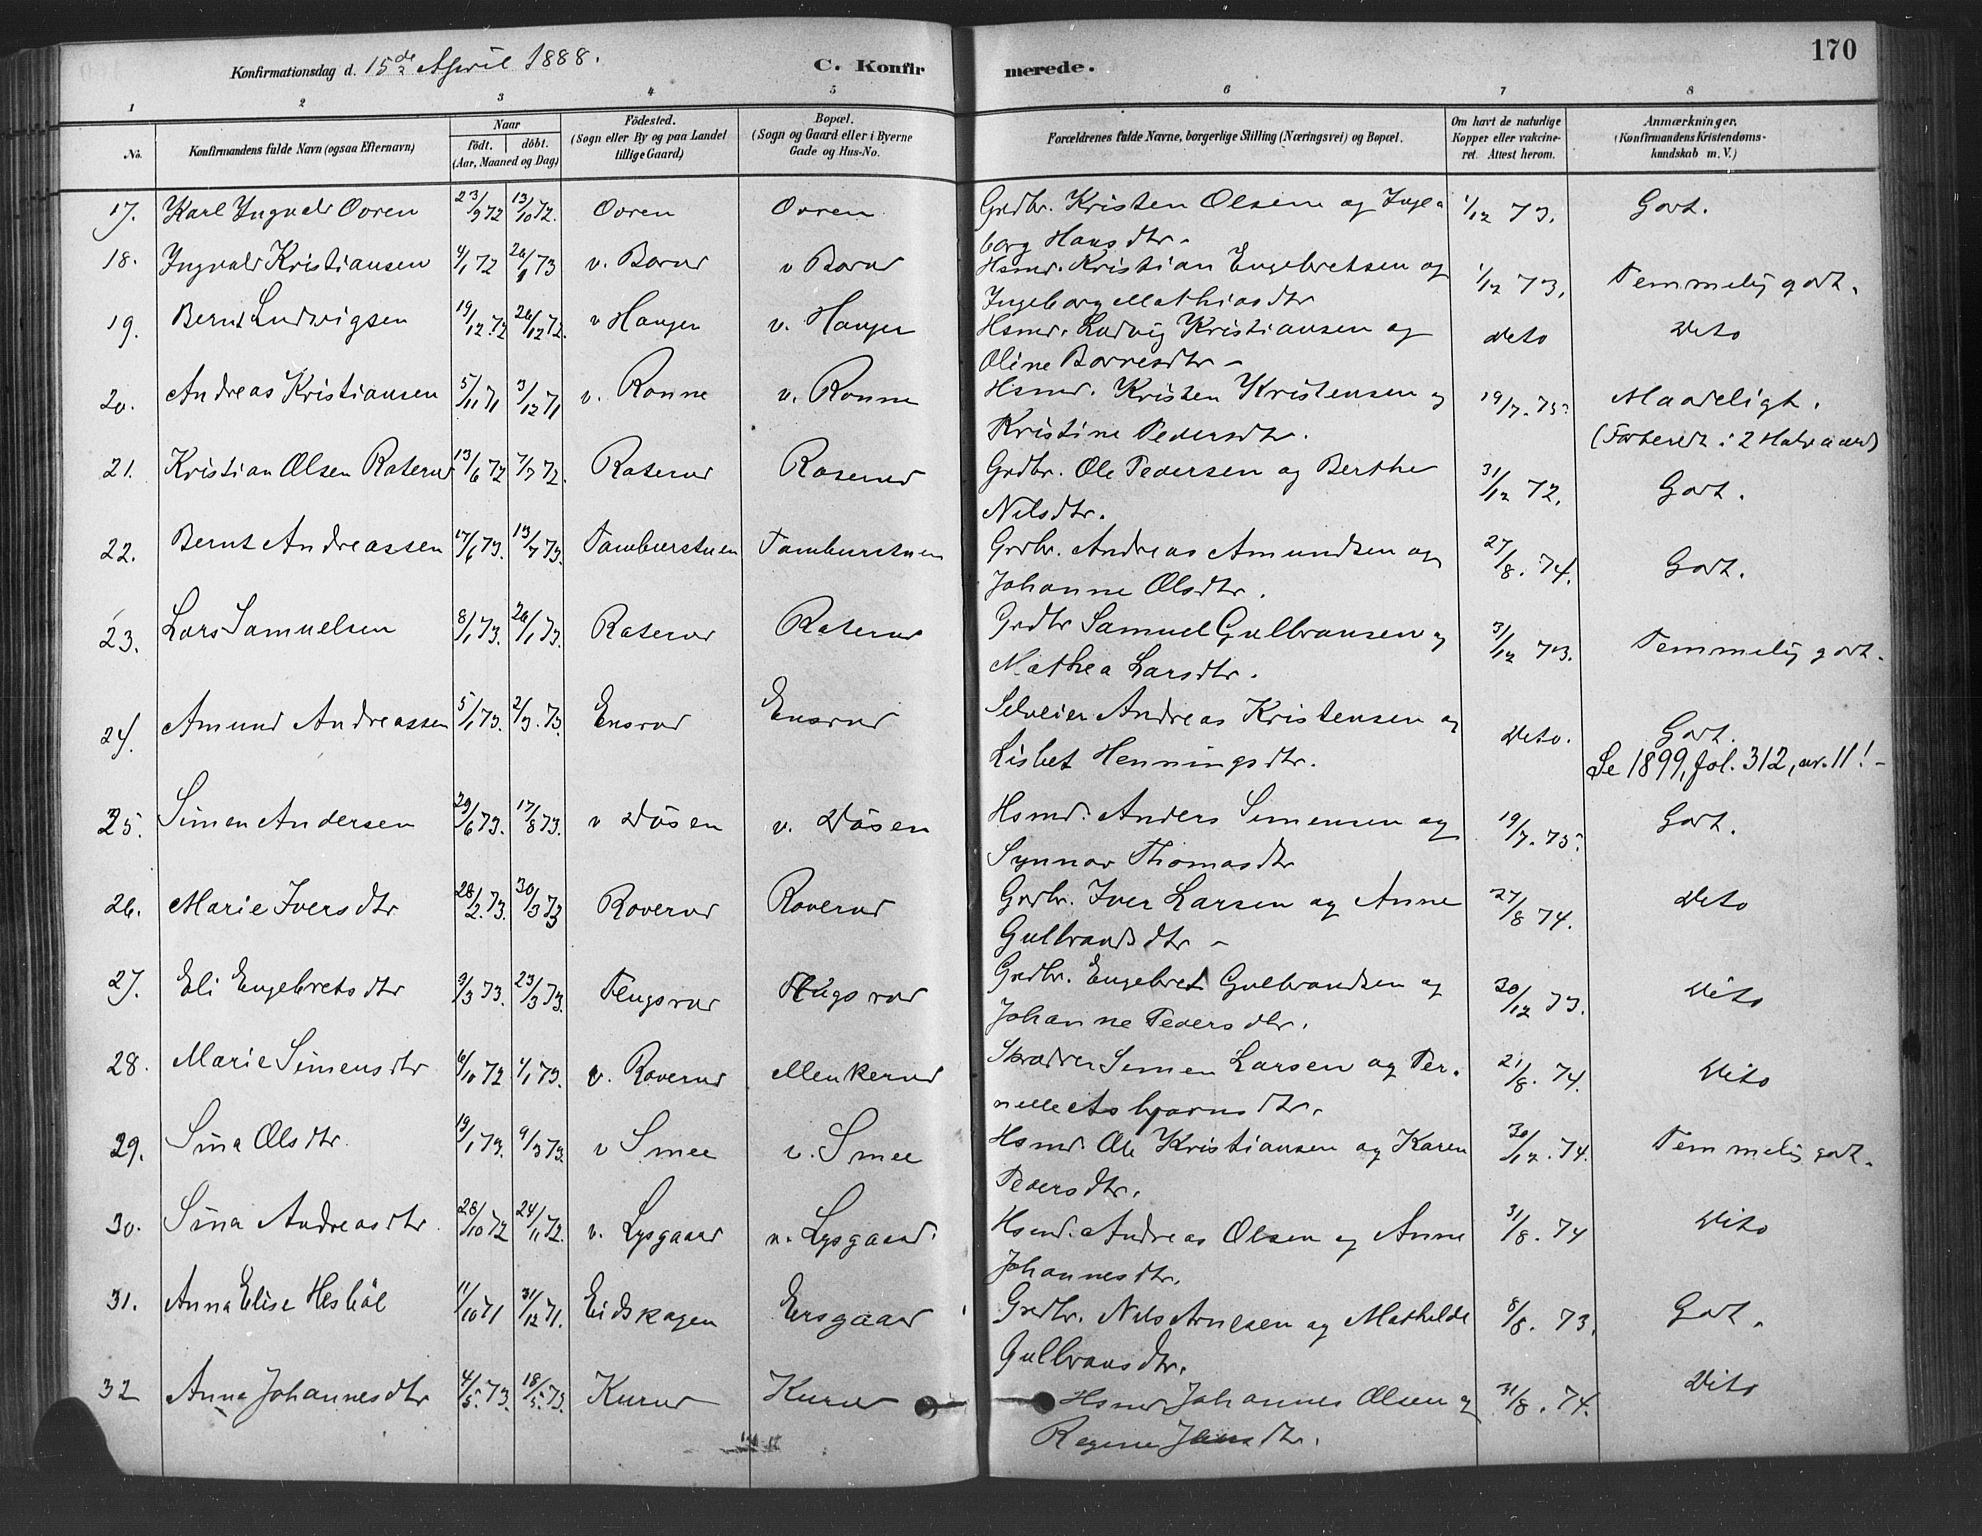 170
Konfirmationsdag d. 15de April 1888.
C. Konfirmerede.
1 2 3 4 5 6 7 8
No.
Konfirmandens fulde Navn (ogsaa Efternavn)
Naar
födt. döbt.
(Aar, Maaned og Dag)
Födested.
(Sogn eller By og paa Landet
tillige Gaard)
Bopæl.
(Sogn og Gaard eller i Byerne
Gade og Hus-No.
Forældrenes fulde Navne, borgerlige Stilling (Næringsvei) og Bopæl.
Om havt de naturlige
Kopper eller vakcine-
ret. Attest herom.
Anmærkninger.
(Konfirmandens Kristendoms-
kundskab m. V.)
17. Karl Ingvald Ovren 23/9 72 13/10 72. Ovren Ovren Grdbr. Kristen Olsen og Inge- 1/12 73. Godt.
borg Hansdtr.
18. Ingvald Kristiansen 4/1 72 26/1 73 v. Borud v Borud Hsmd. Kristian Engebretsen og 1/12 73. Temmelig godt.
Ingeborg Mathiasdtr
19. Bernt Ludvigsen 19/12 72 26/12 72. v Haugen v. Haugen Hsmd. Ludvig Kristiansen og deto Deto
Oline Borresdtr -
20. Andreas Kristiansen 5/11 71 3/12 71 v. Ronne v. Ronne Hsmd. Kristen Kristensen og 19/7. 75. Maadeligt.
Kristine Pedersdtr. (Forberedt i 2 Halvaar)
21. Kristian Olsen Roterud 13/6 72 7/7 72. Roterud Roterud Grdbr. Ole Pedersen og Berthe 31/12 72. Godt.
Nilsdtr.
22. Bernt Andreassen 17/6 73. 13/7 73. Tamburstuen Tamburstuen Grdbr. Andreas Amundsen og 27/8. 74. Godt.
Johanne Olsdtr.
23. Lars Samuelsen 8/1 73. 26/1 73. Roterud Roterud Grdbr Samuel Gulbransen og 31/12 73. Temmelig godt.
Mathea Larsdtr.
24. Amund Andreassen 5/1 73. 2/3. 73. Ensrud Ensrud Selveier Andreas Kristensen og Deto. Godt.
Lisbet Henningsdtr. Se 1899, fol. 312, nr. 11! -
25. Simen Andersen 29/6 73. 17/8 73. v Dösen v. Dösen Hsmd. Anders Simensen og 19/7. 75. Godt.
Synnøv Thomasdtr
26. Marie Iversdtr 28/2. 73. 30/3 73 Roverud Roverud Grdbr. Iver Larsen og Anne 27/8 74. Deto
Gulbrandsdtr -
27. Eli Engebretsdtr 9/3 73. 23/3 73. Flugsrud Flugsrud Grdbr. Engebret Gulbrandsen og 30/12 73. Dito
Johanne Pedersdtr.
28. Marie Simensdtr 6/10 72 1/1 73. v. Roverud Menkerud Skrædder Simen Larsen og Per- 21/8. 74. Dito
nille Asbjørnsdtr.
29. Sina Olsdtr. 19/1 73. 9/3 73. v Smee v. Smee Hsmd. Ole Kristiansen og Karen 30/12. 74. Temmelig godt.
Pedersdtr.
30. Sina Andreasdtr. 28/10 72 24/11 72. v. Lysgaard v. Lysgaard. Hsmd. Andreas Olsen og Anne 31/8. 74 Dito
Johannesdtr.
31. Anna Elise Hesböl 11/10 71 31/12 71. Eidskogen Ersgaard Grdbr. Nils Arnesen og Mathilde 8/8. 73. Godt.
Gulbransdtr.
32 Anna Johannesdtr 4/5. 73. 18/5. 73. Kurud Kurud Hsmd Johannes Olsen og 31/8. 74. Dito
Regine Jansdtr.